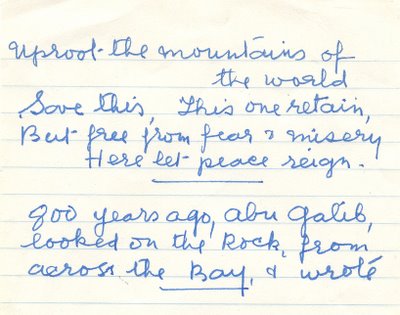 Uproot the mountains of
the world
Save this, This one retain,
But free from fear & misery
Here let peace reign.
900 years ago, abu Galib,
looked on the Rock, from
across the Bay, & wrote